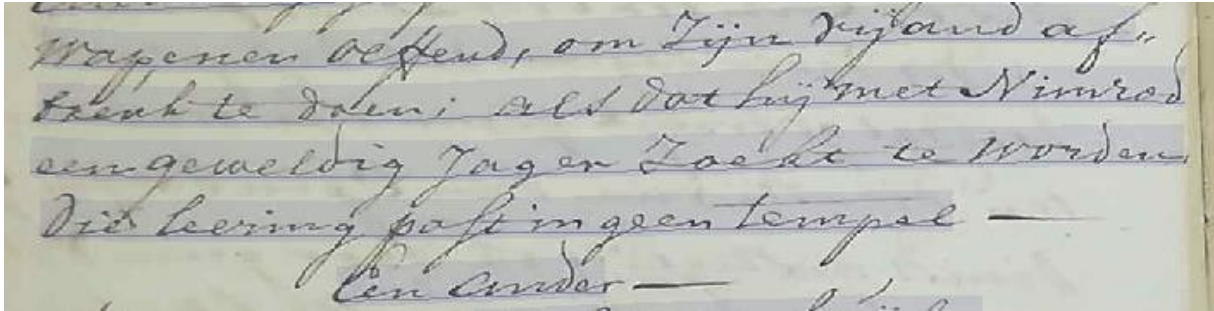 wapenen oeffend, om Zijn vijand af„
breuk te doen; als dat hij met Nimrod
een geweldig Jager Zoekt te worden,
die leering past in geen tempel —
Een ander —